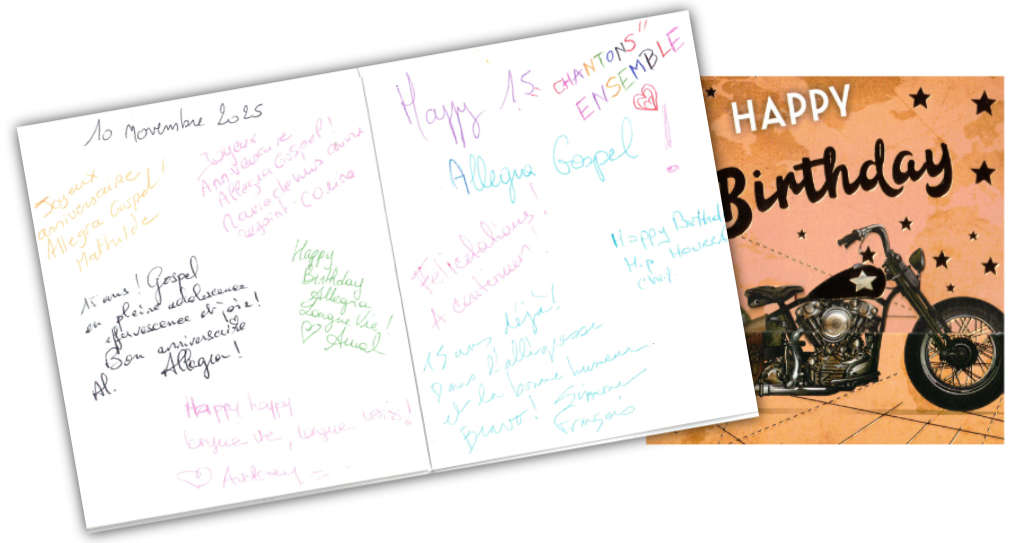 10 Novembre 2025
Joyeux
anniversaire
Allegra Gospel!
Mathilde
Joyeux
Anniversaire
Allegra Gospel!
15 ans! Gospel
en pleine adolescence
effervescence et joie!
Bon anniversaire
Allegra!
Al.
Happy
Birthday
Allegra
Longue vie!
Happy happy
longue vie, longue
Happy 15
CHANTONS"
ENSEMBLE
Allegra Gospel
!
Félicitations!
A continuer!
Happy Birthd
15 ans déjà!
d'allégresse
et la bonne humeur.
Bravo!
François
HAPPY
Birthday